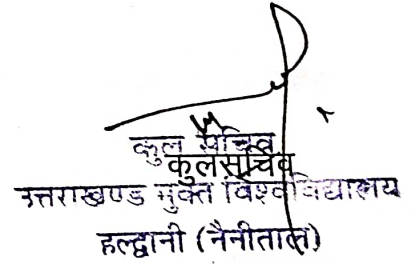 कुल सचिव
कुलसचिव
उत्तराखण्ड मुक्त विश्वविद्यालय
हल्द्वानी (नैनीताल)